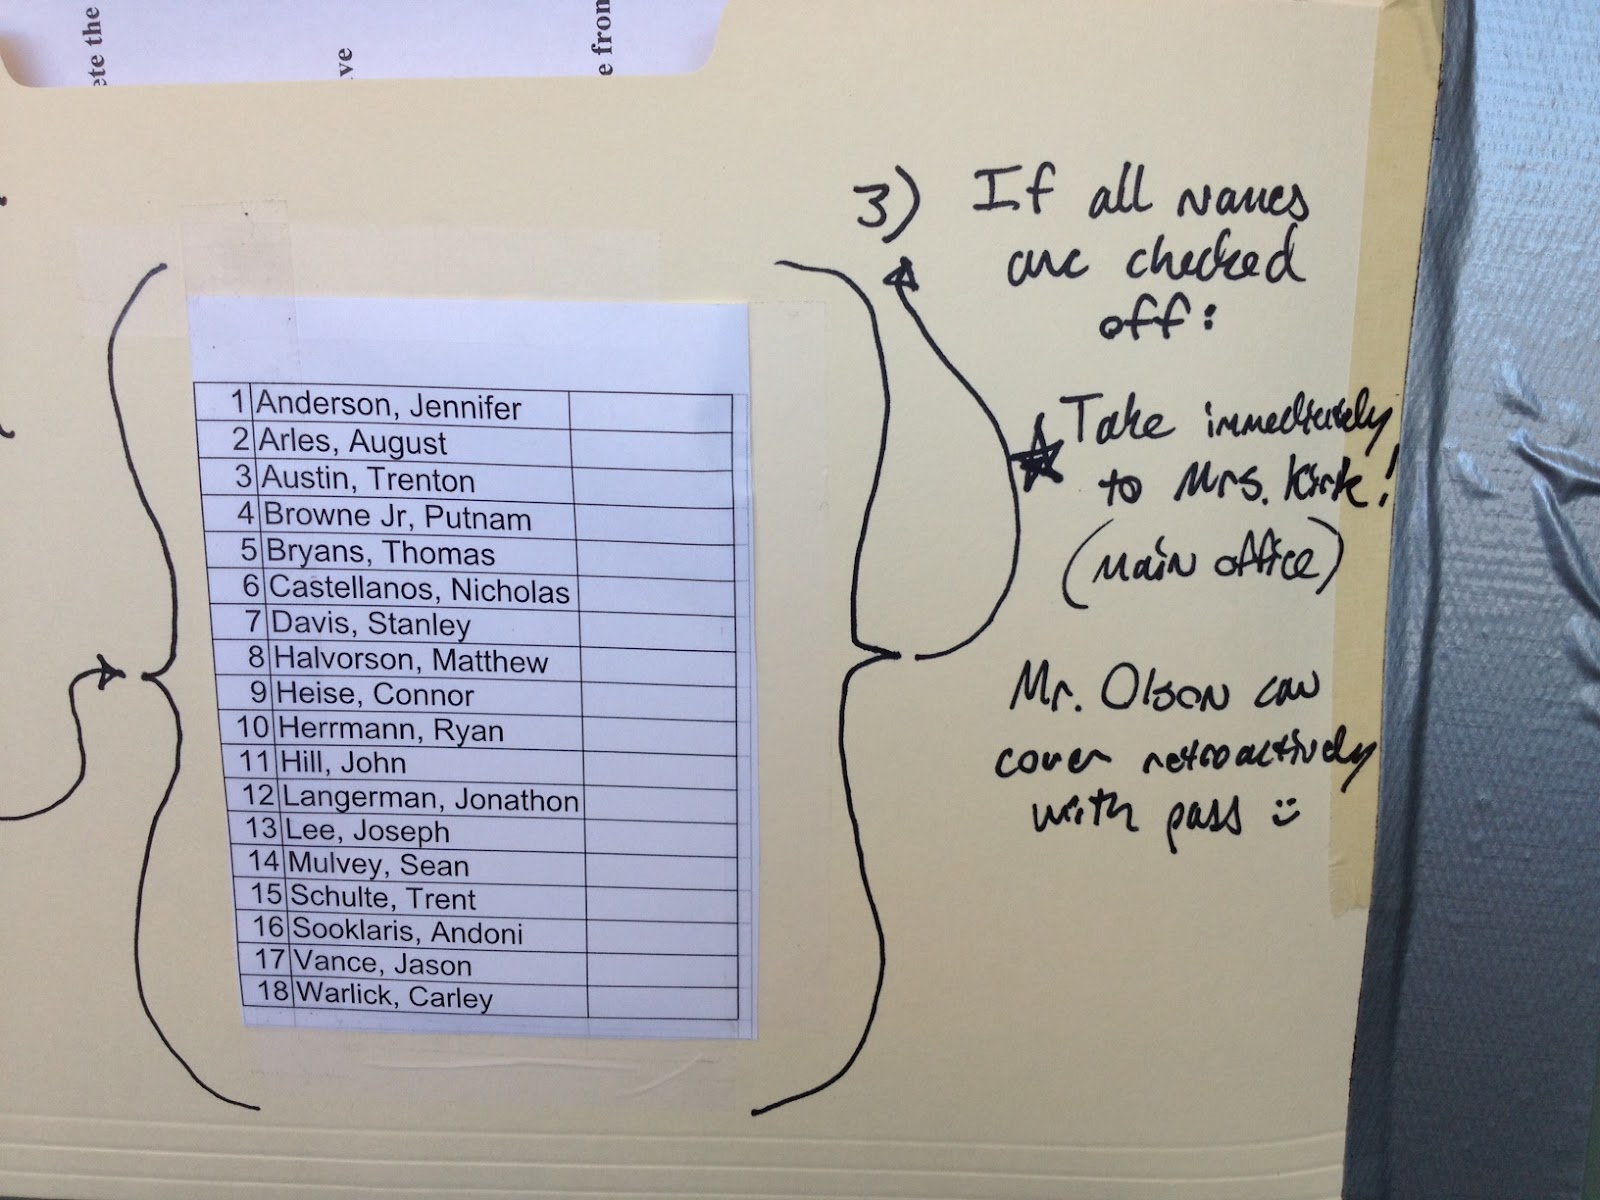 ete the
ve
e from
3) If all names
are checked
off:
Take immediately
to Mrs. Kirk!
(Main office)
Mr. Olson can
cover retroactively
with pass :)
1 Anderson, Jennifer
2 Arles, August
3 Austin, Trenton
4 Browne Jr, Putnam
5 Bryans, Thomas
6 Castellanos, Nicholas
7 Davis, Stanley
8 Halvorson, Matthew
9 Heise, Connor
10 Herrmann, Ryan
11 Hill, John
12 Langerman, Jonathon
13 Lee, Joseph
14 Mulvey, Sean
15 Schulte, Trent
16 Sooklaris, Andoni
17 Vance, Jason
18 Warlick, Carley